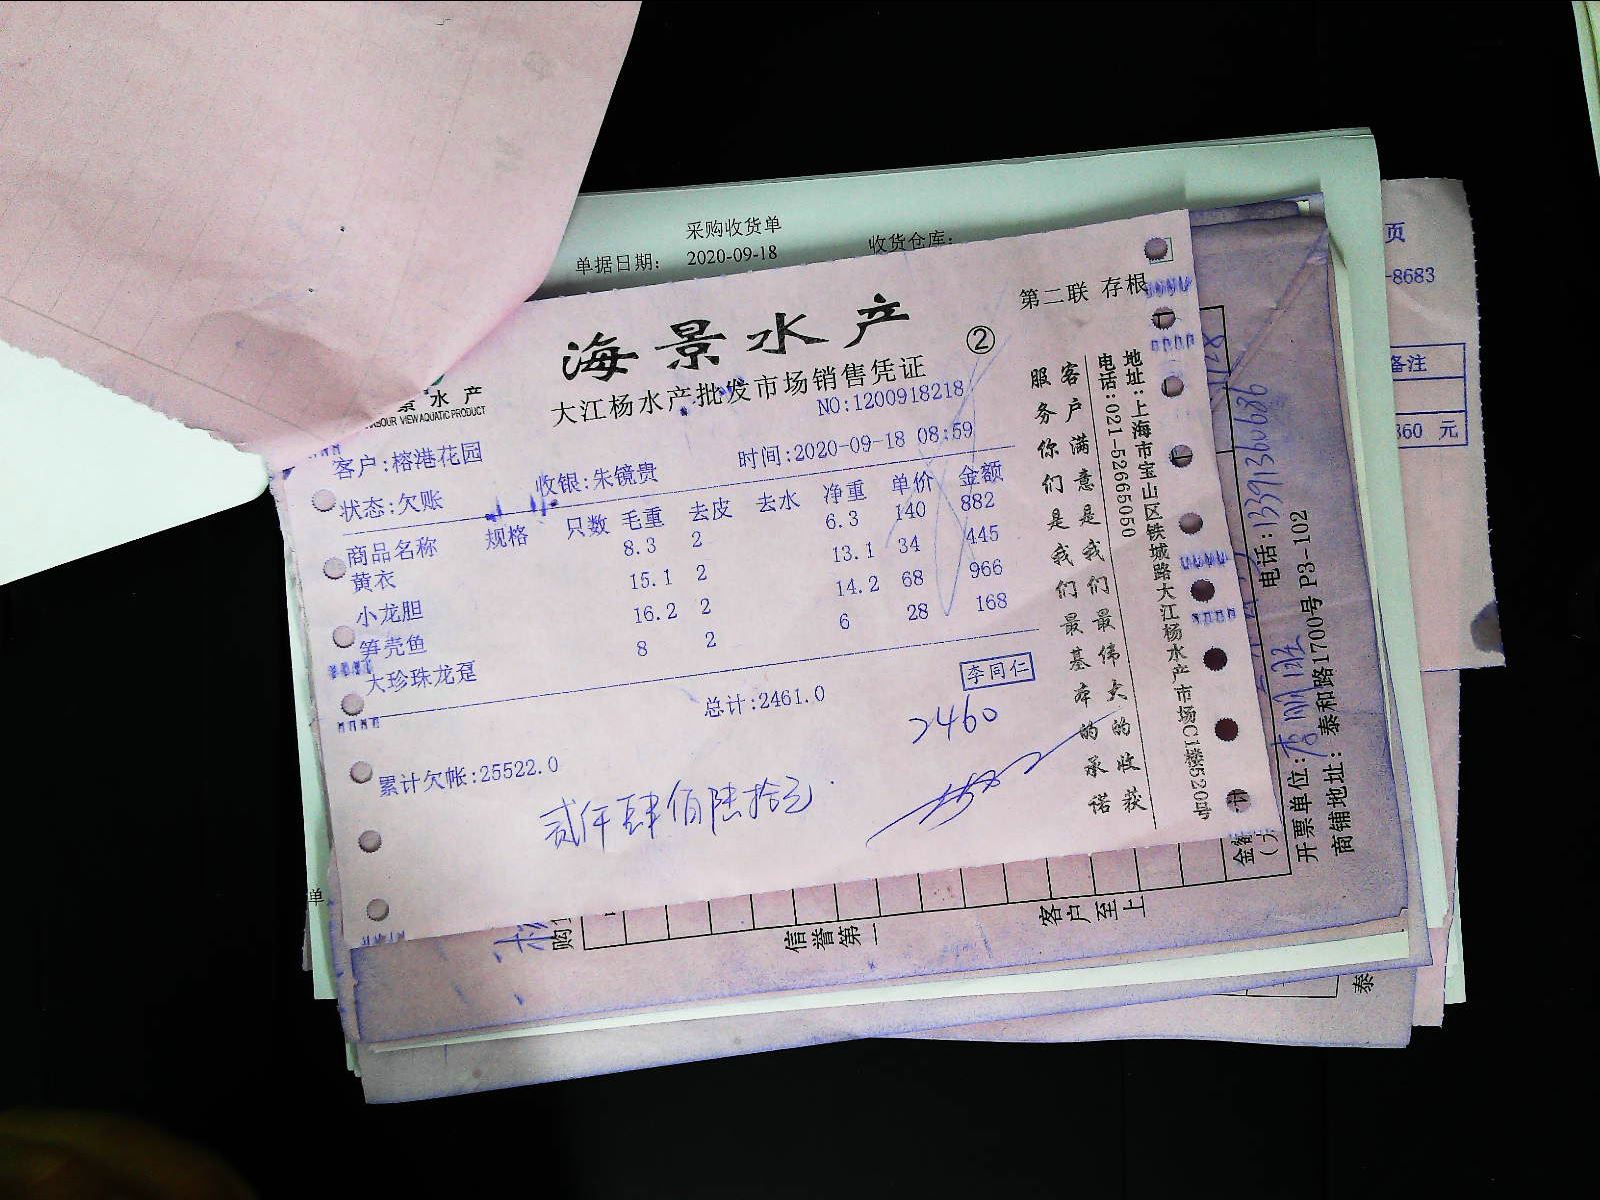 采购收货单
单据日期： 2020-09-18 收货仓库：
页
-8683
备注
360 元
第二联 存根
海景水产
②
景水产
HARBOUR VIEW AQUATIC PRODUCT
大江杨水产批发市场销售凭证
NO:1200918218
客户:榕港花园
收银:朱镜贵
时间:2020-09-18 08:59
状态:欠账
商品名称 规格 只数 毛重 去皮 去水 净重 单价 金额
黄衣 8.3 2 6.3 140 882
小龙胆 15.1 2 13.1 34 445
笋壳鱼 16.2 2 14.2 68 966
大珍珠龙趸 8 2 6 28 168
总计:2461.0
李同仁
2460
累计欠帐:25522.0
贰仟肆佰陆拾元
客户满意是我们最伟大的收获
服务你们是我们最基本的承诺
地址:上海市宝山区铁城路大江杨水产市场C1楼520号
电话:021-52665050
电话:13391360686
开票单位:
商铺地址: 泰和路1700号 P3-102
金额
计
购
信誉第一
客户至上
单
泰